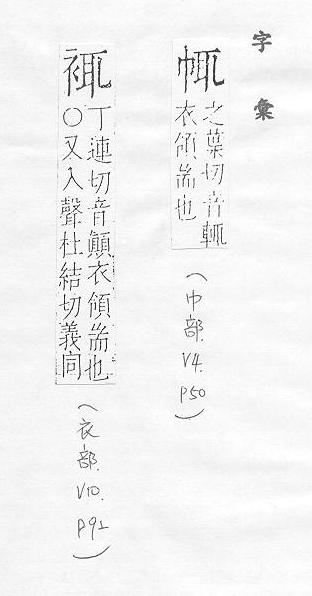 字彙
㡇
之葉切音輒
衣領耑也
(巾部.V4.P50)
丁連切音顛衣領耑也
○又入聲杜結切義同
(衣部.V10.P92)